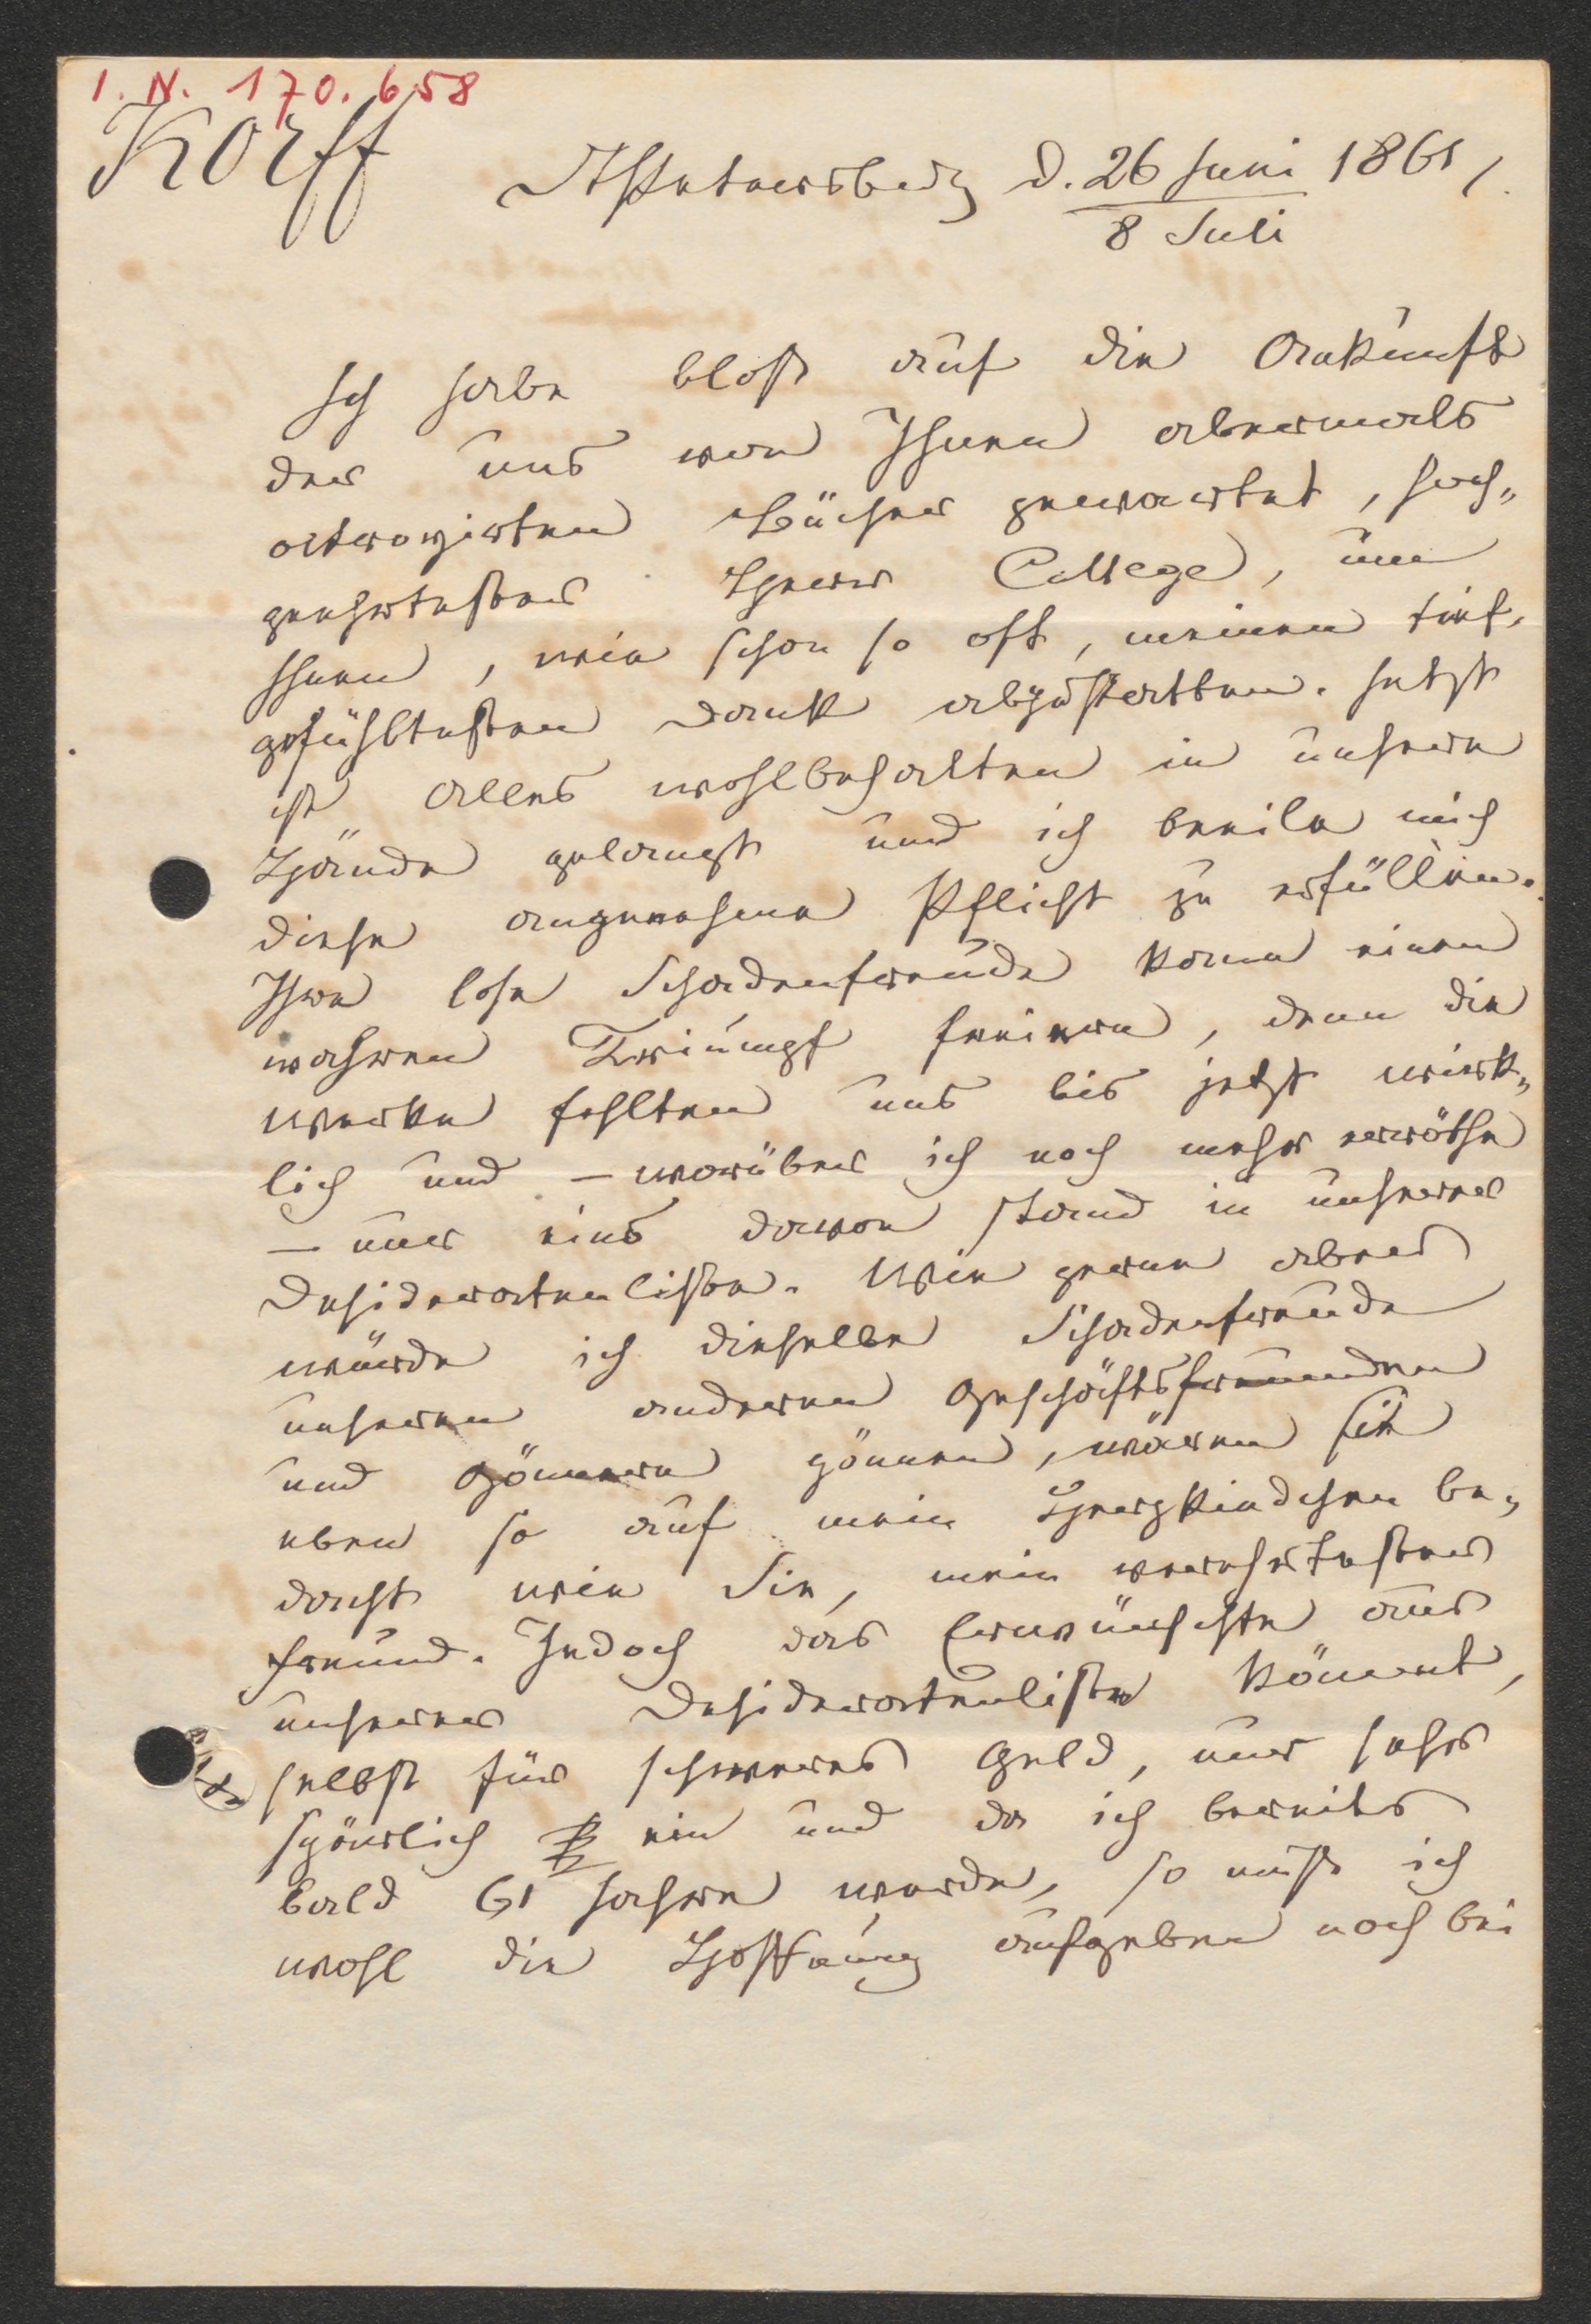 I. N. 170.658
Korff
St Petersburg d. 26 Juni 1861.
8 Juli
Ich habe bloß auf die Ankunft
der uns von Ihnen abermals
octroyirten Bücher gewartet, hoch„
geehrtester Herr College, um
Ihnen, wie schon so oft, meinen tief„
gefühltesten Dank abzustatten. Jetzt
ist alles wohlbehalten in unsere
Hände gelangt und ich beeile mich
diese angenehme Pflicht zu erfüllen.
Ihre lose Schadenfreude kann einen
wahren Triumpf feiern, denn die
Werke fehlten uns bis jetzt wirk„
lich und – worüber ich noch mehr erröthe
– nur eins davon stand in unserer
Desideratenliste. Wie gerne aber
würde ich dieselbe Schadenfreude
unseren anderen Geschäftsfreunden
und Gönnern gönnen, wären sie
eben so auf mein Herzkindchen be„
dacht wie Sie, mein verehrtester
Freund. Jedoch das Erwünschte aus
unserer Desideratenliste kömmt,
selbst für schweres Geld, nur sehr
spärlich ein und da ich bereits
bald 61 Jahre werde, so muß ich
wohl die Hoffnung aufgeben noch bei